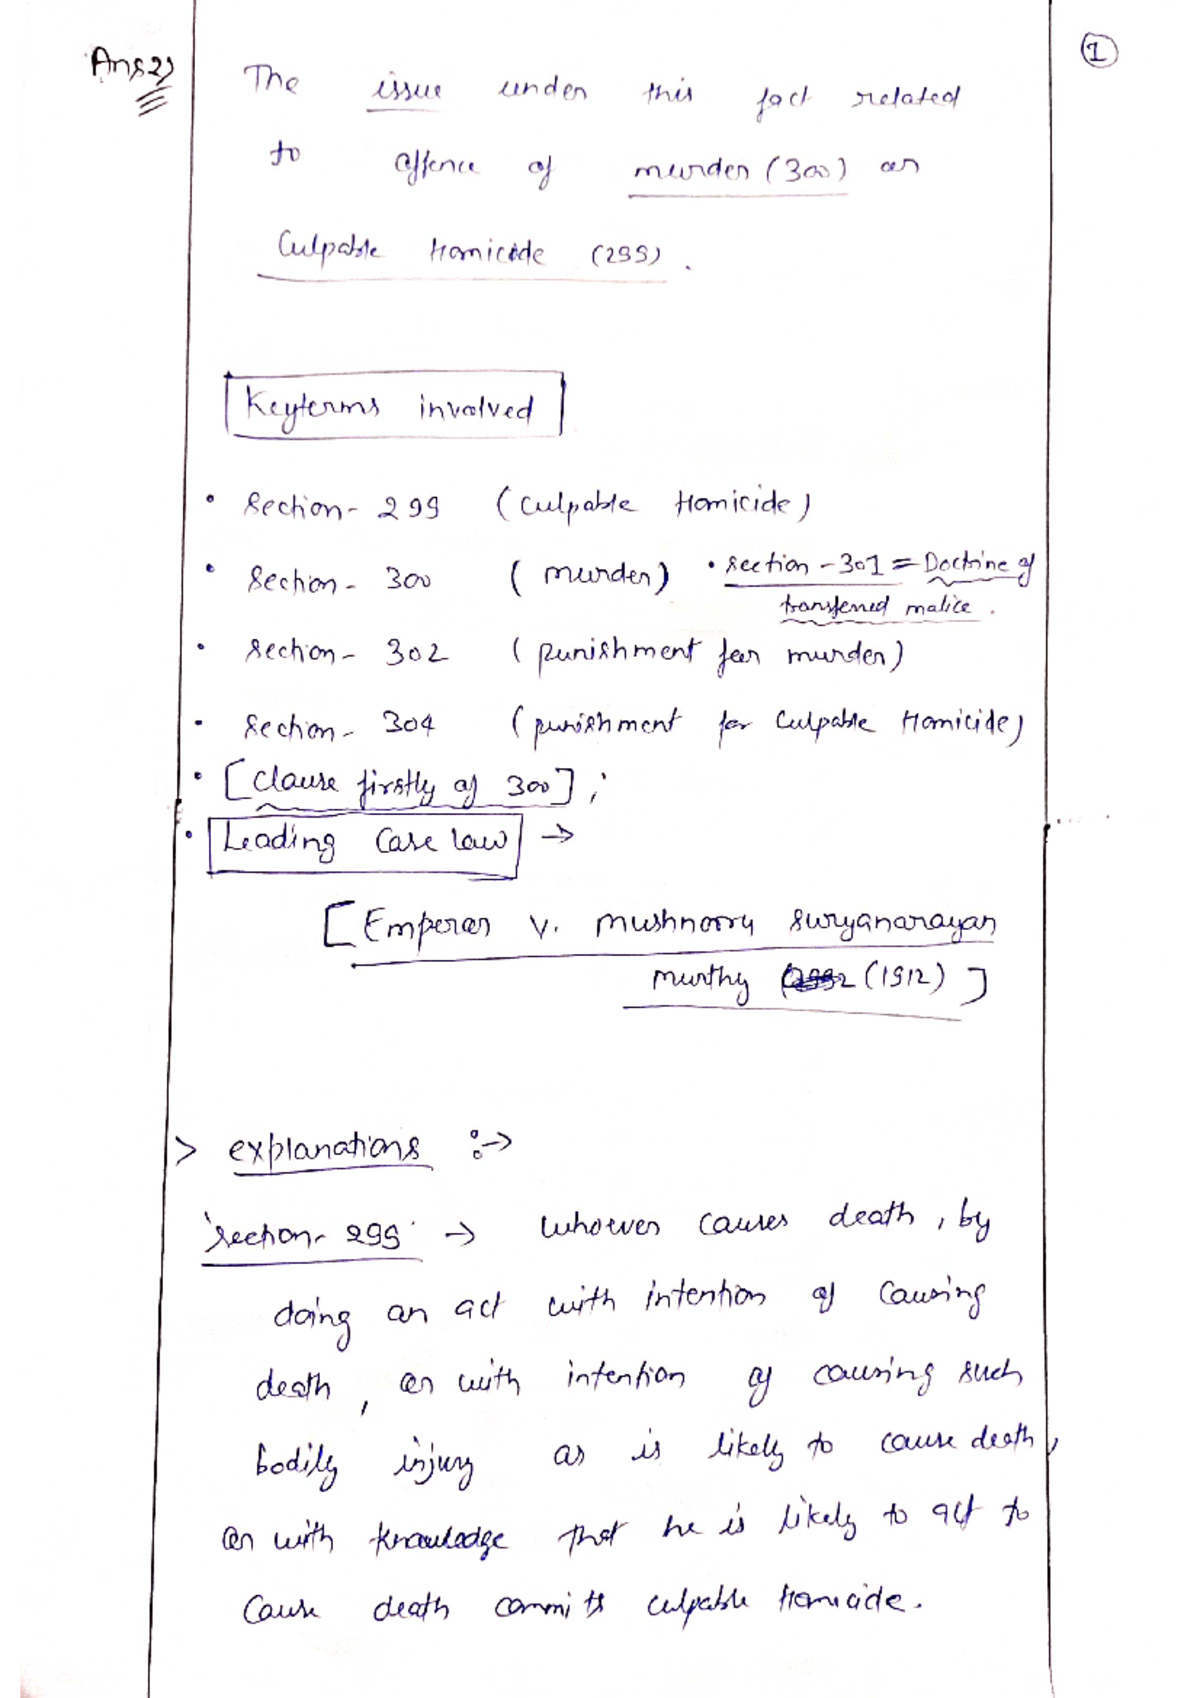 Ans2)
1
The issue under this fact related
to offence of murder (300) or
Culpable Homicide (299).
Keyterms involved
• Section - 299 (Culpable Homicide)
• Section - 300 (murder) • Section - 301 = Doctrine of
transferred malice.
• Section - 302 (punishment for murder)
• Section - 304 (punishment for Culpable Homicide)
• [Clause firstly of 300];
• Leading Case law →
[Emperor v. mushnooru Suryanarayan
murthy (1912)]
> explanations :→
'Section - 299' → Whoever causes death, by
doing an act with intention of causing
death, or with intention of causing such
bodily injury as is likely to cause death,
or with knowledge that he is likely to act to
Cause death commits culpable Homicide.